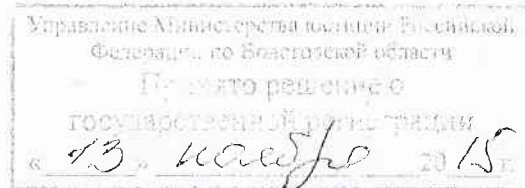 Управление Министерства юстиции Российской
Федерации по Вологодской области
Принято решение о
государственной регистрации
« 13 » ноября 2015 г.